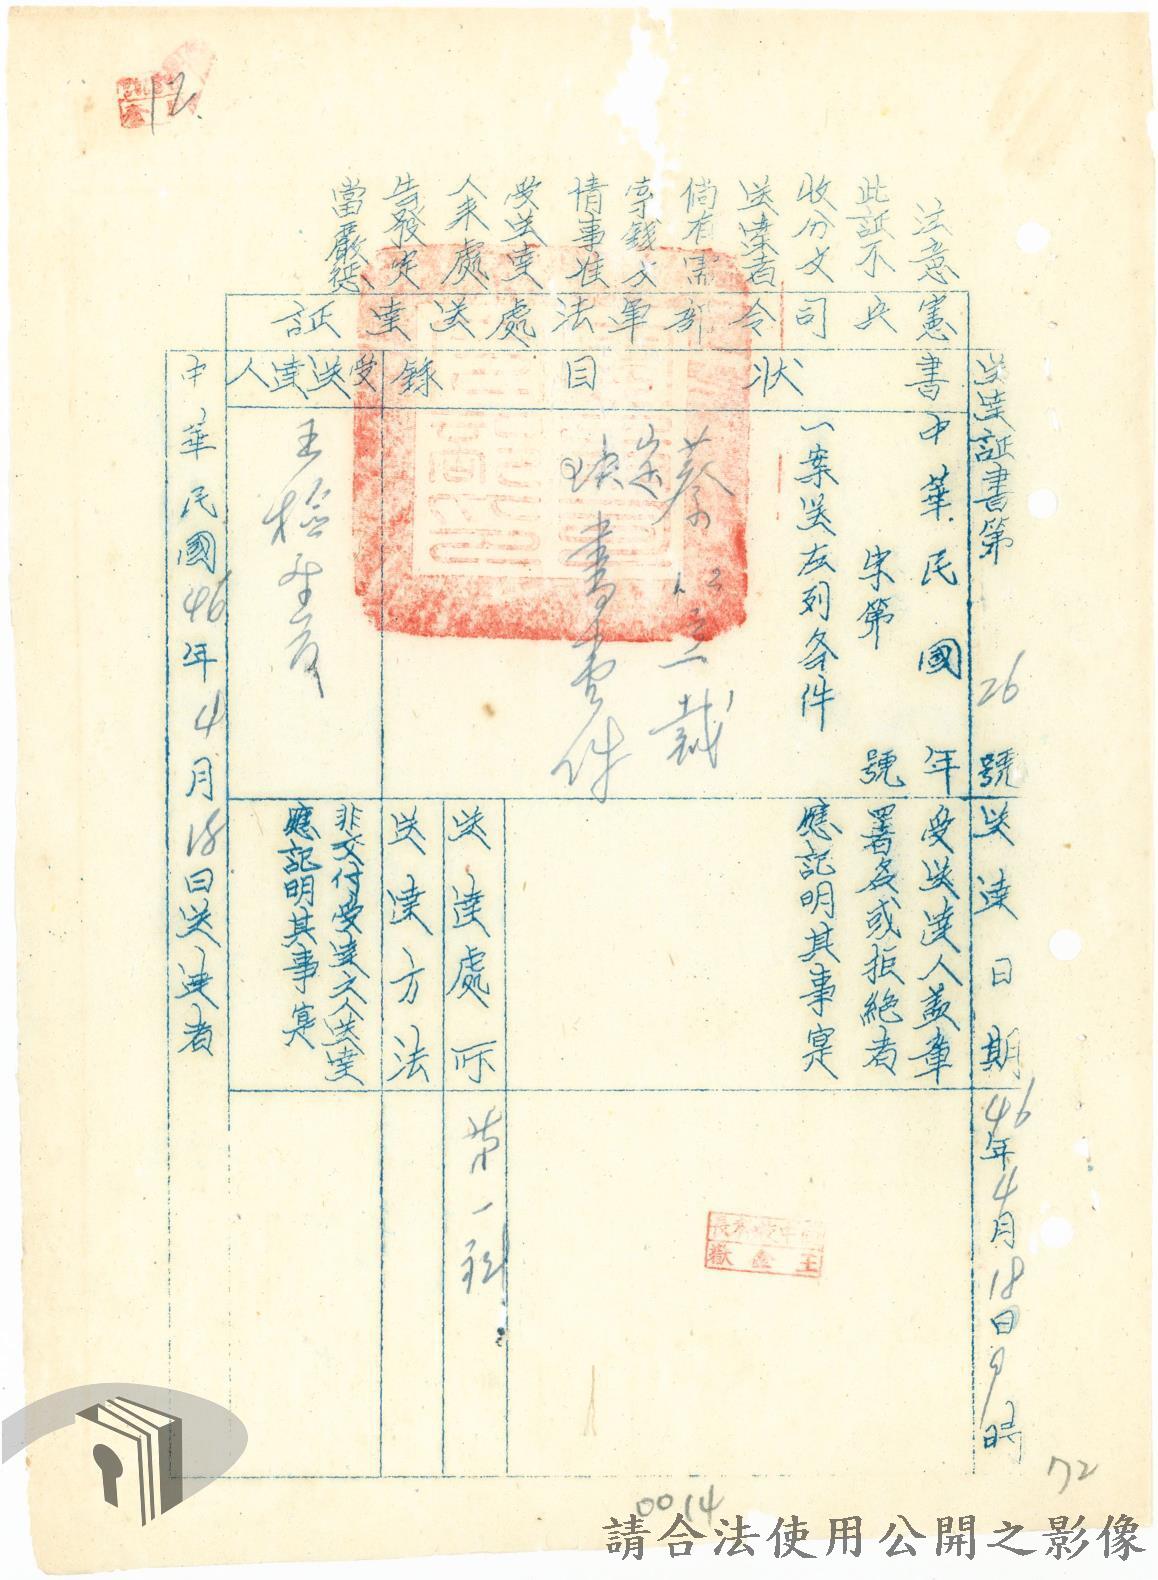 12.
注意
此証不
收分文
送案者
倘有需
索錢文
情事准
受送達
人來處
告發定
當嚴懲
憲兵司令部軍法處送達証
送達証書第26號
書狀目錄
中華民國 年
字第 號
一案送左列各件
裁定書壹件
受送達人
王檢察官
送達日期
46年4月18日9時
受送達人蓋章
署名或拒絕者
應記明其事實
王金嶽
送達處所
第一科
送達方法
非交付受達之人送達
應記明其事實
中華民國46年4月18日送達者
72
0014
請合法使用公開之影像